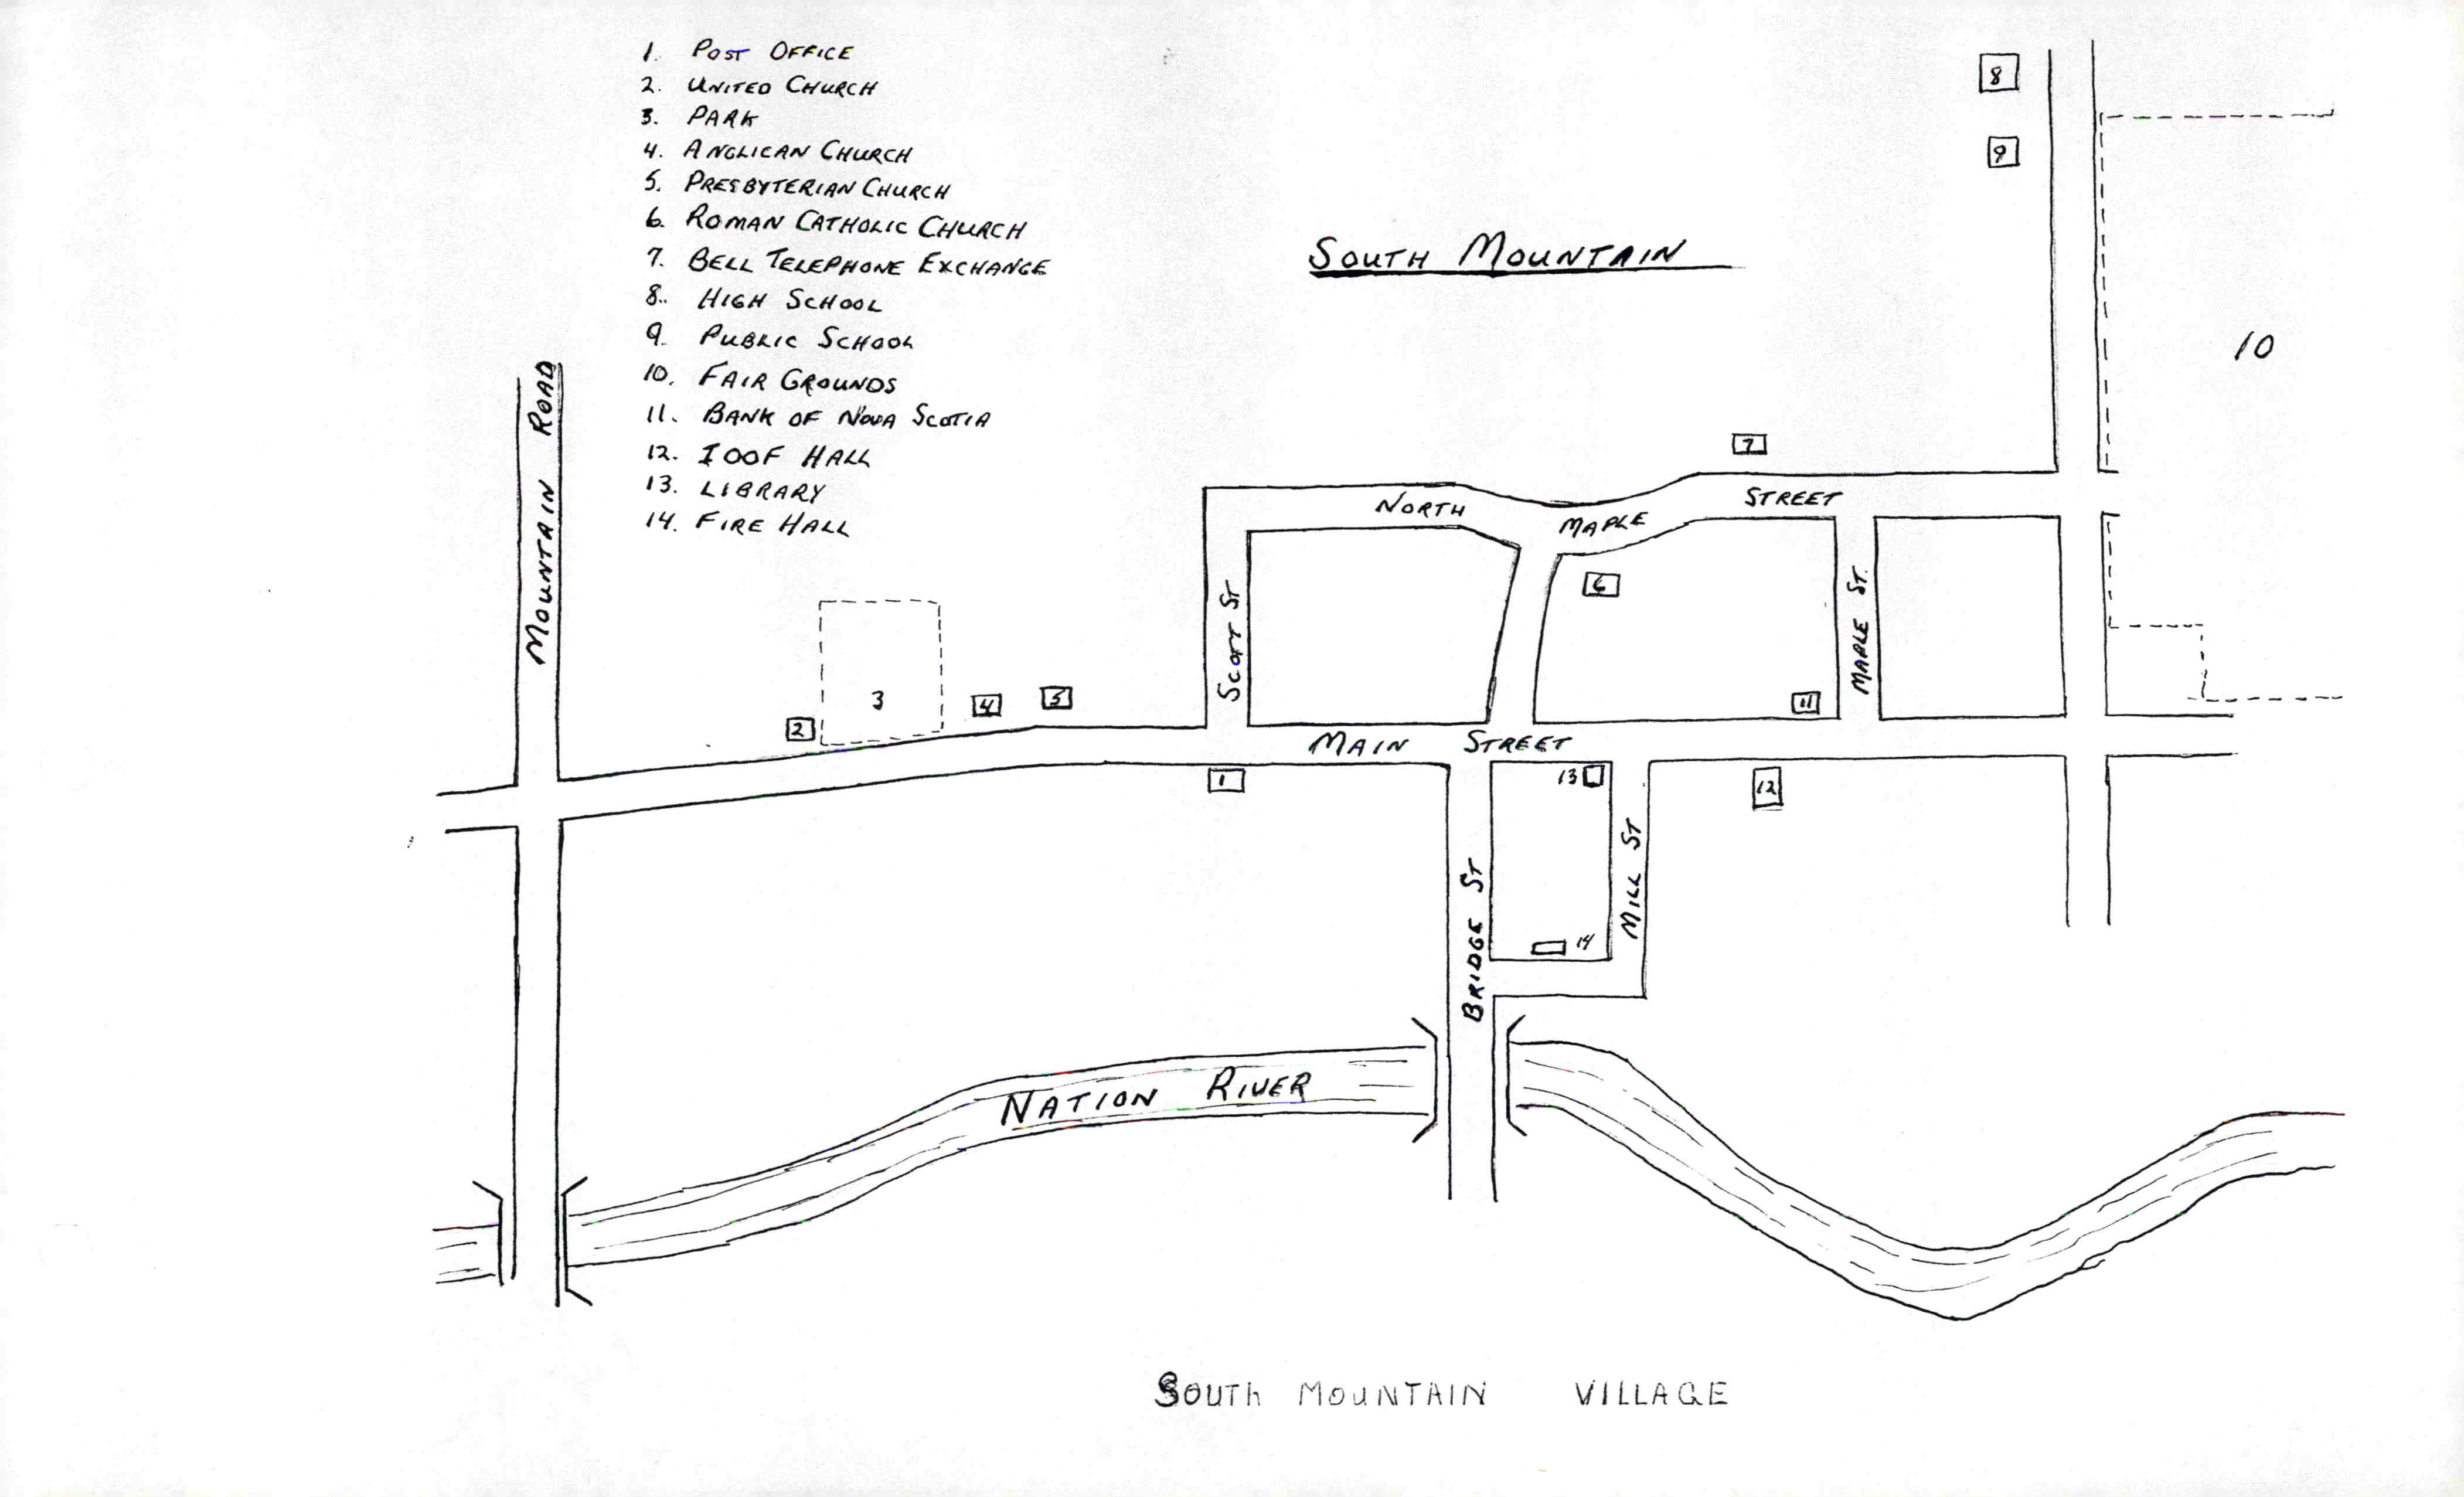 1. POST OFFICE
2. UNITED CHURCH
3. PARK
4. ANGLICAN CHURCH
5. PRESBYTERIAN CHURCH
6. ROMAN CATHOLIC CHURCH
7. BELL TELEPHONE EXCHANGE
8. HIGH SCHOOL
9. PUBLIC SCHOOL
10. FAIR GROUNDS
11. BANK OF NOVA SCOTIA
12. IOOF HALL
13. LIBRARY
14. FIRE HALL
SOUTH MOUNTAIN
8
9
10
MOUNTAIN ROAD
7
NORTH MAPLE STREET
6
SCOTT ST
MAPLE ST.
3
2
4
5
11
MAIN STREET
1
13
12
BRIDGE ST
MILL ST
14
NATION RIVER
SOUTH MOUNTAIN VILLAGE